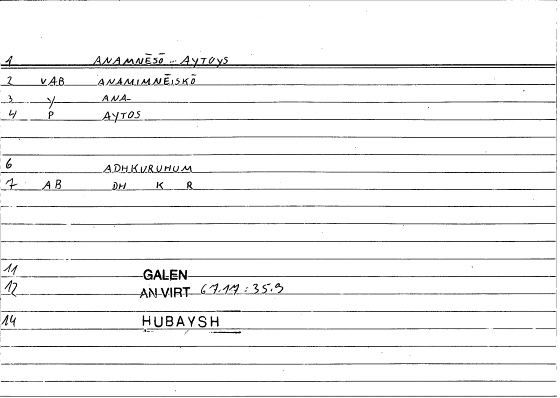 1 ANAMNĒSŌ - AYTOYS
2 VAB ANAMIMNĒISKŌ
3 Y ANA-
4 P AYTOS
6 ADHKURUHUM
7 AB DH K R
11 GALEN
12 AN VIRT
14 HUBAYSH